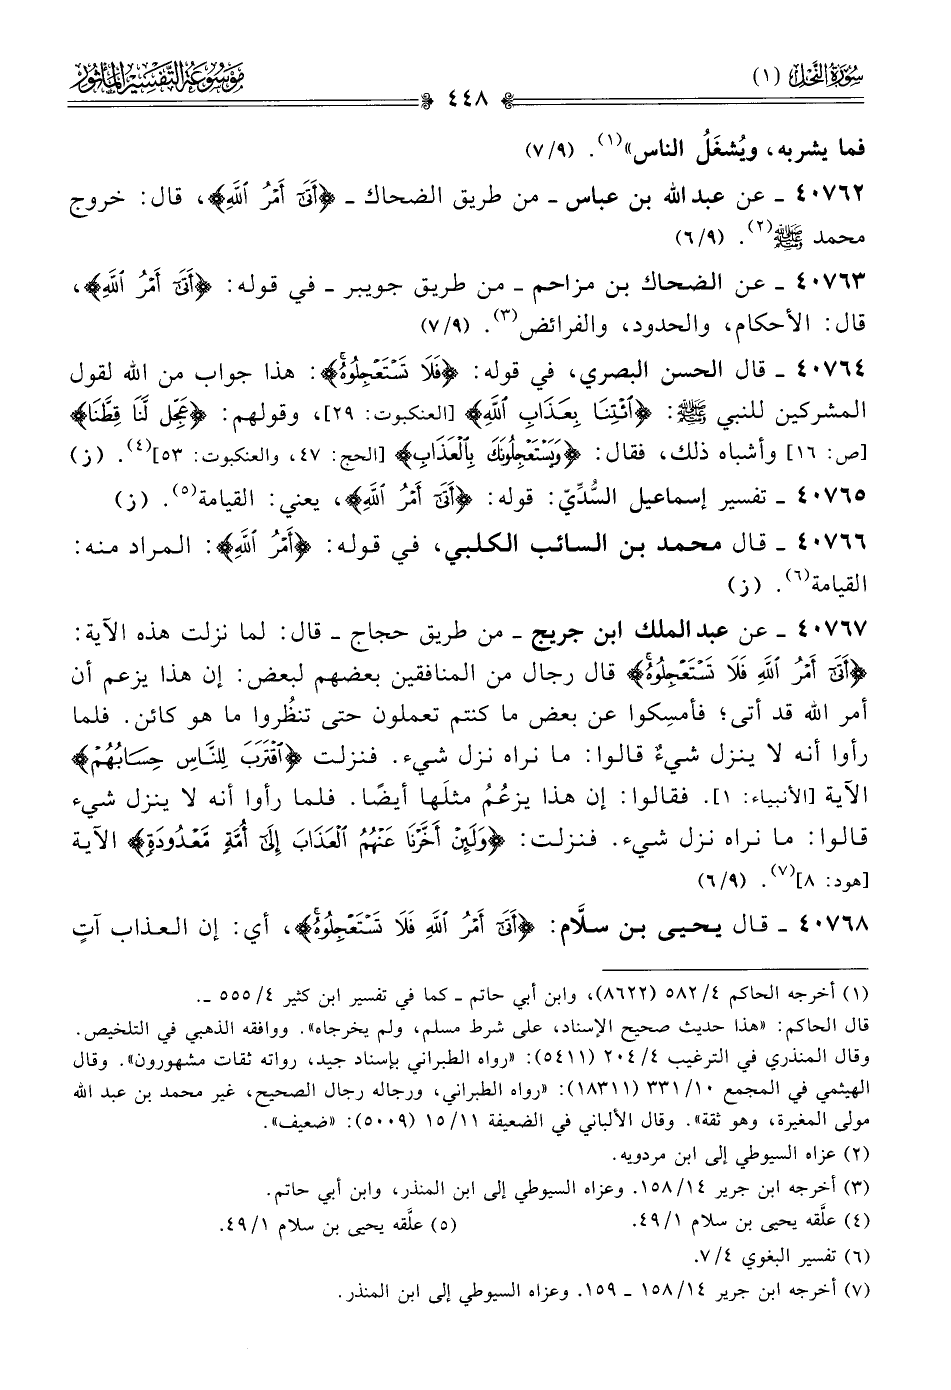 سُورَةُ النَّحْلِ (١)
٤٤٨
مَوْسُوعَةُ التَّفْسِيرِ المَأْثُورِ
فما يشربه، ويُشغَلُ الناس»(١). (٧/٩)
٤٠٧٦٢ ـ عن عبد الله بن عباس ـ من طريق الضحاك ـ ﴿أَتَىٰٓ أَمْرُ ٱللَّهِ﴾، قال: خروج
محمد ﷺ(٢). (٦/٩)
٤٠٧٦٣ ـ عن الضحاك بن مزاحم ـ من طريق جويبر ـ في قوله: ﴿أَتَىٰٓ أَمْرُ ٱللَّهِ﴾،
قال: الأحكام، والحدود، والفرائض(٣). (٧/٩)
٤٠٧٦٤ ـ قال الحسن البصري، في قوله: ﴿فَلَا تَسْتَعْجِلُوهُۚ﴾: هذا جواب من الله لقول
المشركين للنبي ﷺ: ﴿ٱئْتِنَا بِعَذَابِ ٱللَّهِ﴾ [العنكبوت: ٢٩]، وقولهم: ﴿عَجِّل لَّنَا قِطَّنَا﴾
[ص: ١٦] وأشباه ذلك، فقال: ﴿وَيَسْتَعْجِلُونَكَ بِٱلْعَذَابِ﴾ [الحج: ٤٧، والعنكبوت: ٥٣](٤). (ز)
٤٠٧٦٥ ـ تفسير إسماعيل السُّدِّيّ: قوله: ﴿أَتَىٰٓ أَمْرُ ٱللَّهِ﴾، يعني: القيامة(٥). (ز)
٤٠٧٦٦ ـ قال محمد بن السائب الكلبي، في قوله: ﴿أَمْرُ ٱللَّهِ﴾: المراد منه:
القيامة(٦). (ز)
٤٠٧٦٧ ـ عن عبد الملك ابن جريج ـ من طريق حجاج ـ قال: لما نزلت هذه الآية:
﴿أَتَىٰٓ أَمْرُ ٱللَّهِ فَلَا تَسْتَعْجِلُوهُۚ﴾ قال رجال من المنافقين بعضهم لبعض: إن هذا يزعم أن
أمر الله قد أتى؛ فأمسِكوا عن بعض ما كنتم تعملون حتى تنظُروا ما هو كائن. فلما
رأوا أنه لا ينزل شيءٌ قالوا: ما نراه نزل شيء. فنزلت ﴿ٱقْتَرَبَ لِلنَّاسِ حِسَابُهُمْ﴾
الآية [الأنبياء: ١]. فقالوا: إن هذا يزعُمُ مثلَها أيضًا. فلما رأوا أنه لا ينزل شيء
قالوا: ما نراه نزل شيء. فنزلت: ﴿وَلَئِنْ أَخَّرْنَا عَنْهُمُ ٱلْعَذَابَ إِلَىٰٓ أُمَّةٍ مَّعْدُودَةٍ﴾ الآية
[هود: ٨](٧). (٦/٩)
٤٠٧٦٨ ـ قال يحيى بن سلَّام: ﴿أَتَىٰٓ أَمْرُ ٱللَّهِ فَلَا تَسْتَعْجِلُوهُۚ﴾، أي: إن العذاب آتٍ
(١) أخرجه الحاكم ٤/ ٥٨٢ (٨٦٢٢)، وابن أبي حاتم ـ كما في تفسير ابن كثير ٤/ ٥٥٥ ـ.
قال الحاكم: «هذا حديث صحيح الإسناد، على شرط مسلم، ولم يخرجاه». ووافقه الذهبي في التلخيص.
وقال المنذري في الترغيب ٤/ ٢٠٤ (٥٤١١): «رواه الطبراني بإسناد جيد، رواته ثقات مشهورون». وقال
الهيثمي في المجمع ١٠/ ٣٣١ (١٨٣١١): «رواه الطبراني، ورجاله رجال الصحيح، غير محمد بن عبد الله
مولى المغيرة، وهو ثقة». وقال الألباني في الضعيفة ١١/ ١٥ (٥٠٠٩): «ضعيف».
(٢) عزاه السيوطي إلى ابن مردويه.
(٣) أخرجه ابن جرير ١٤/ ١٥٨. وعزاه السيوطي إلى ابن المنذر، وابن أبي حاتم.
(٤) علَّقه يحيى بن سلام ١/ ٤٩. (٥) علَّقه يحيى بن سلام ١/ ٤٩.
(٦) تفسير البغوي ٤/ ٧.
(٧) أخرجه ابن جرير ١٤/ ١٥٨ ـ ١٥٩. وعزاه السيوطي إلى ابن المنذر.